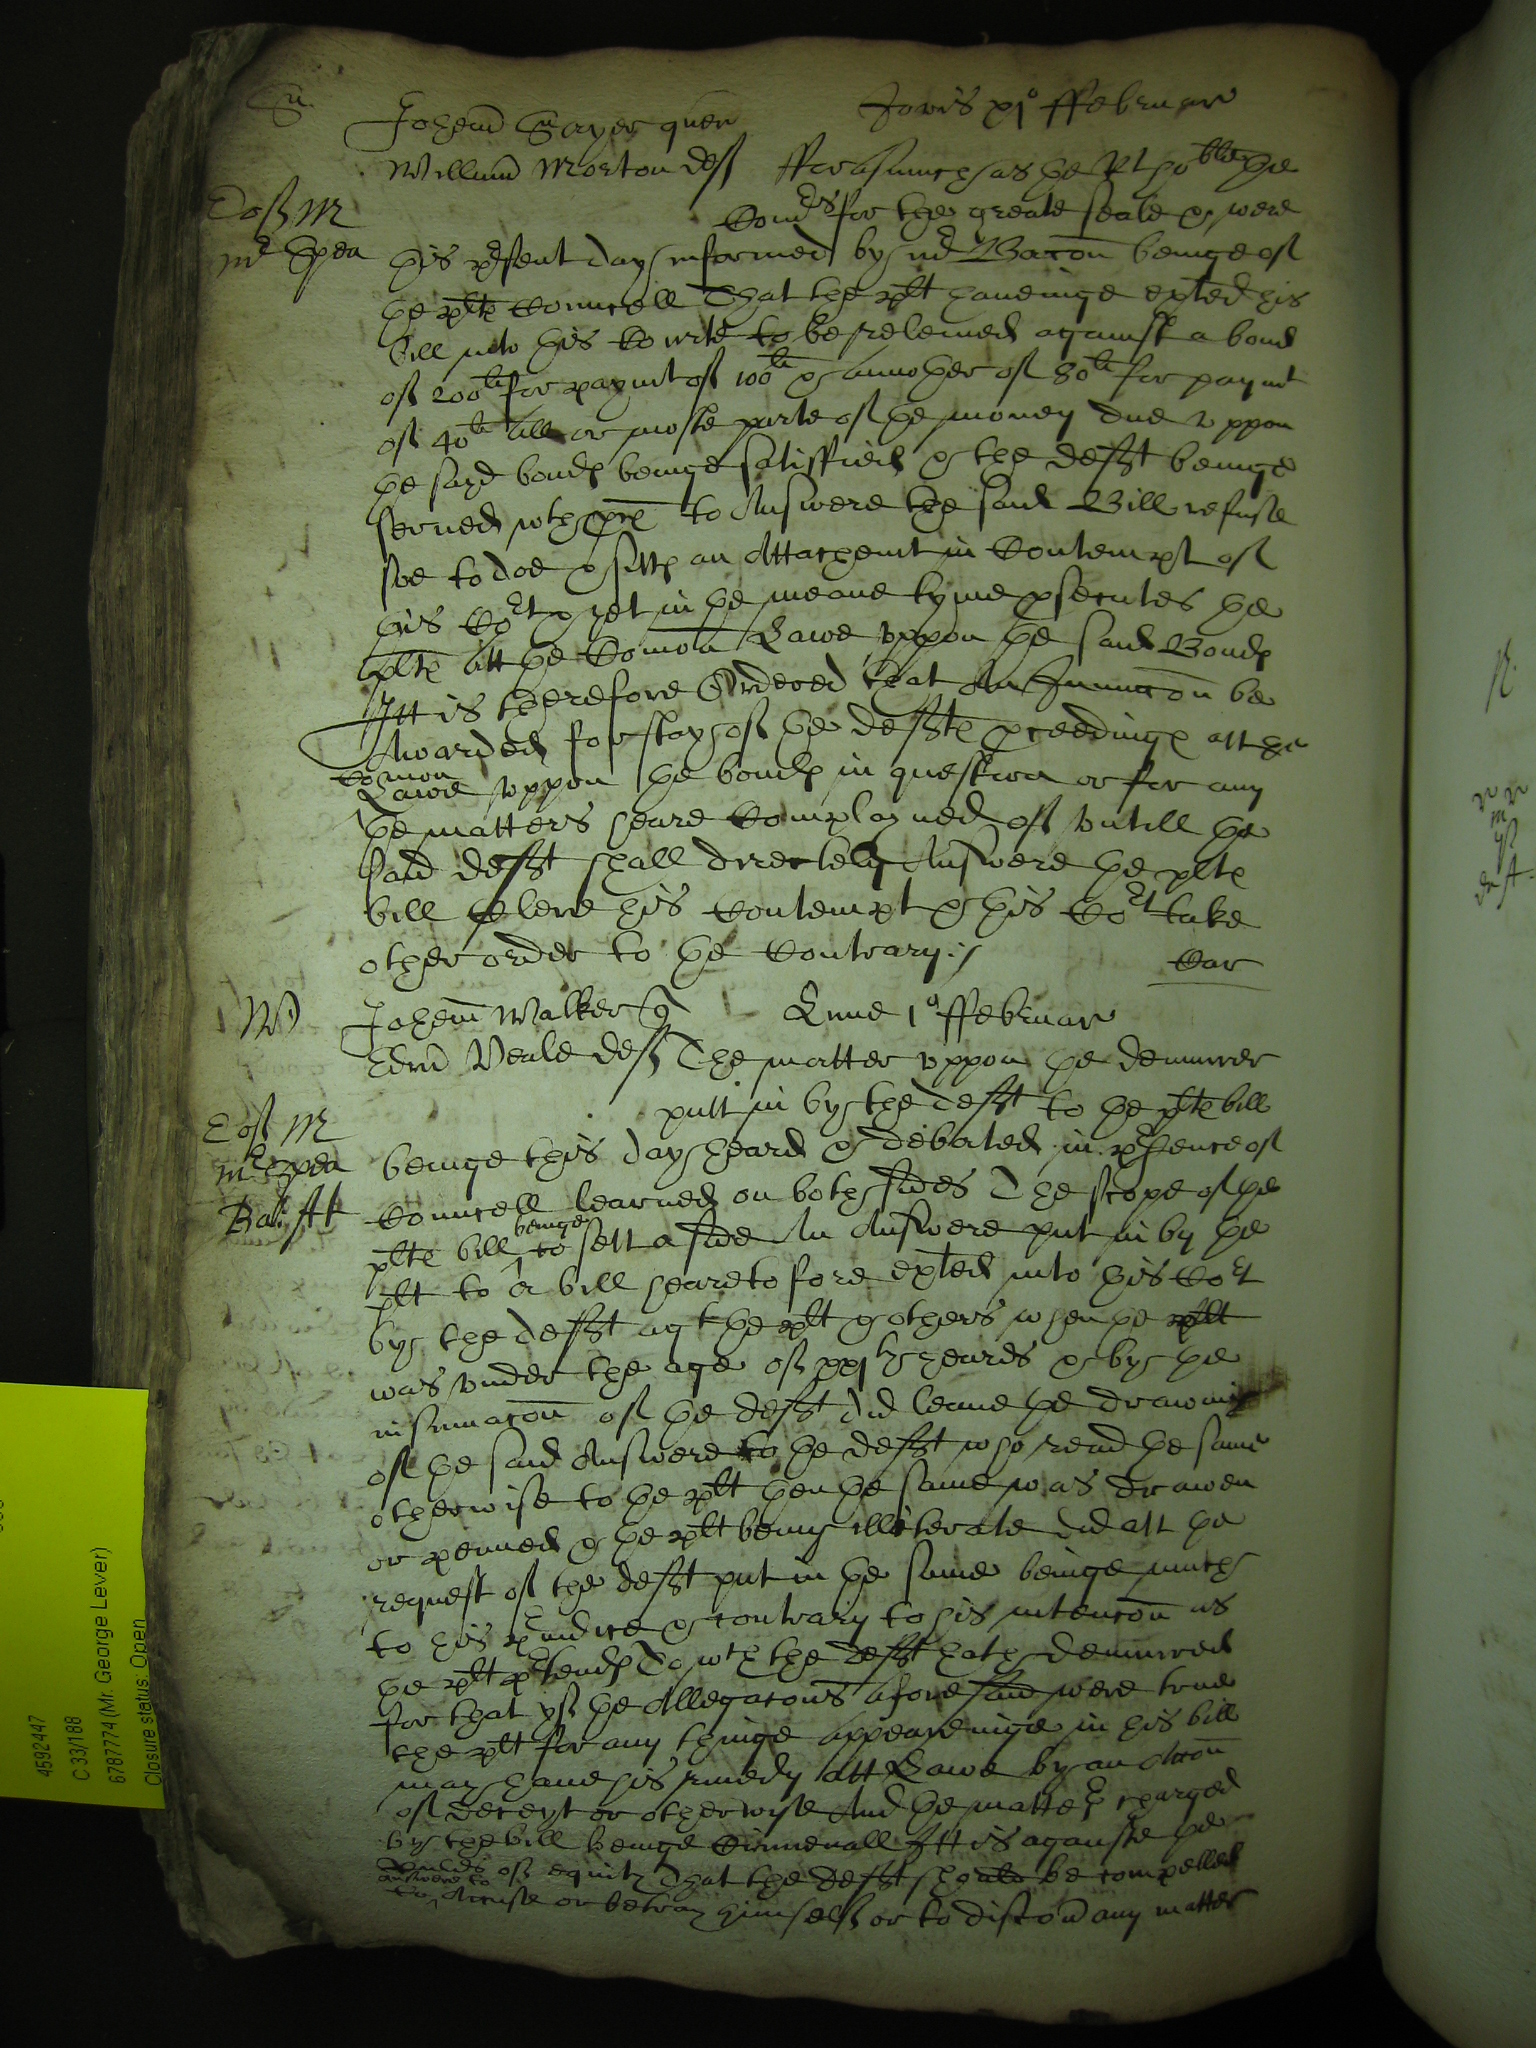 Sa
Johem Sayer quer Jovis xj° ffebruar
Willim Morton deft fforasmuch as the Rt ho:ble the
Cos M
Comrs for the greate seale &, were
mr Spea
this psent day informed by mr Bacon beinge of
the plts Councell That the plt haveinge exted his
bill into this Courte to be releived against a bond
of 200li for paymt of 100li & annother of 80li for paymt
of 40li all or moste parte of the money due uppon
the sayd bonds beinge satisffied & the defft beinge
served wth pces to Answere the said Bill refuse
soe to doe & sitts an Attachemt in Contempt of
this Cort & yet in the meane tyme psecutes the
plts att the Comon Lawe uppon the said Bonds
Itt is therefore Ordered that An Iniunccon be
Awarded for stay of the deffts pceedings att the
Comon
Lawe uppon the bonds in question or for any
the matters heare Complayned of untill the
said defft shall directely Answere the plts
bill cleere his Contempt & this Cort take
other order to the Contrary:/ Car
W
Johem Walker q Lune 1° ffebruar
Edrd Veale deft The matter uppon the demurrer
putt in by the defft to the plts bill
Cos M
mr Spea
beinge this day heard & debated in psence of
Ba: At
Councell learned on both sides The scope of the
plts bill beinge to sett aside An Answere put in by the
plt to a bill hearetofore exted into this Cort
by the defft agt the plt & others when the plt
was under the age of xxj th yeares & by the
insinuacon of the defft did leave the drawing
of the said Answere to the defft who read the same
otherwise to the plt then the same was drawen
or penned & the plt being illiterate did att the
request of the defft put in the same beinge much
to his piudice & contrary to his intencon as
the plt ptends To wch the defft hath demurred
for that yf the Allegacons aforesaid were true
the plt for any thinge appeareinge in his bill
may have his remedy att Lawe by an Accon
of deceyt or otherwise And the matter charged
by the bill beinge Criminall Itt is against the
of equity That the defft should be compelled
answere to
to Accuse or betray himself or to discov any matter
4592447
C 33/188
6787774 (Mr. George Lever)
Closure status: Open